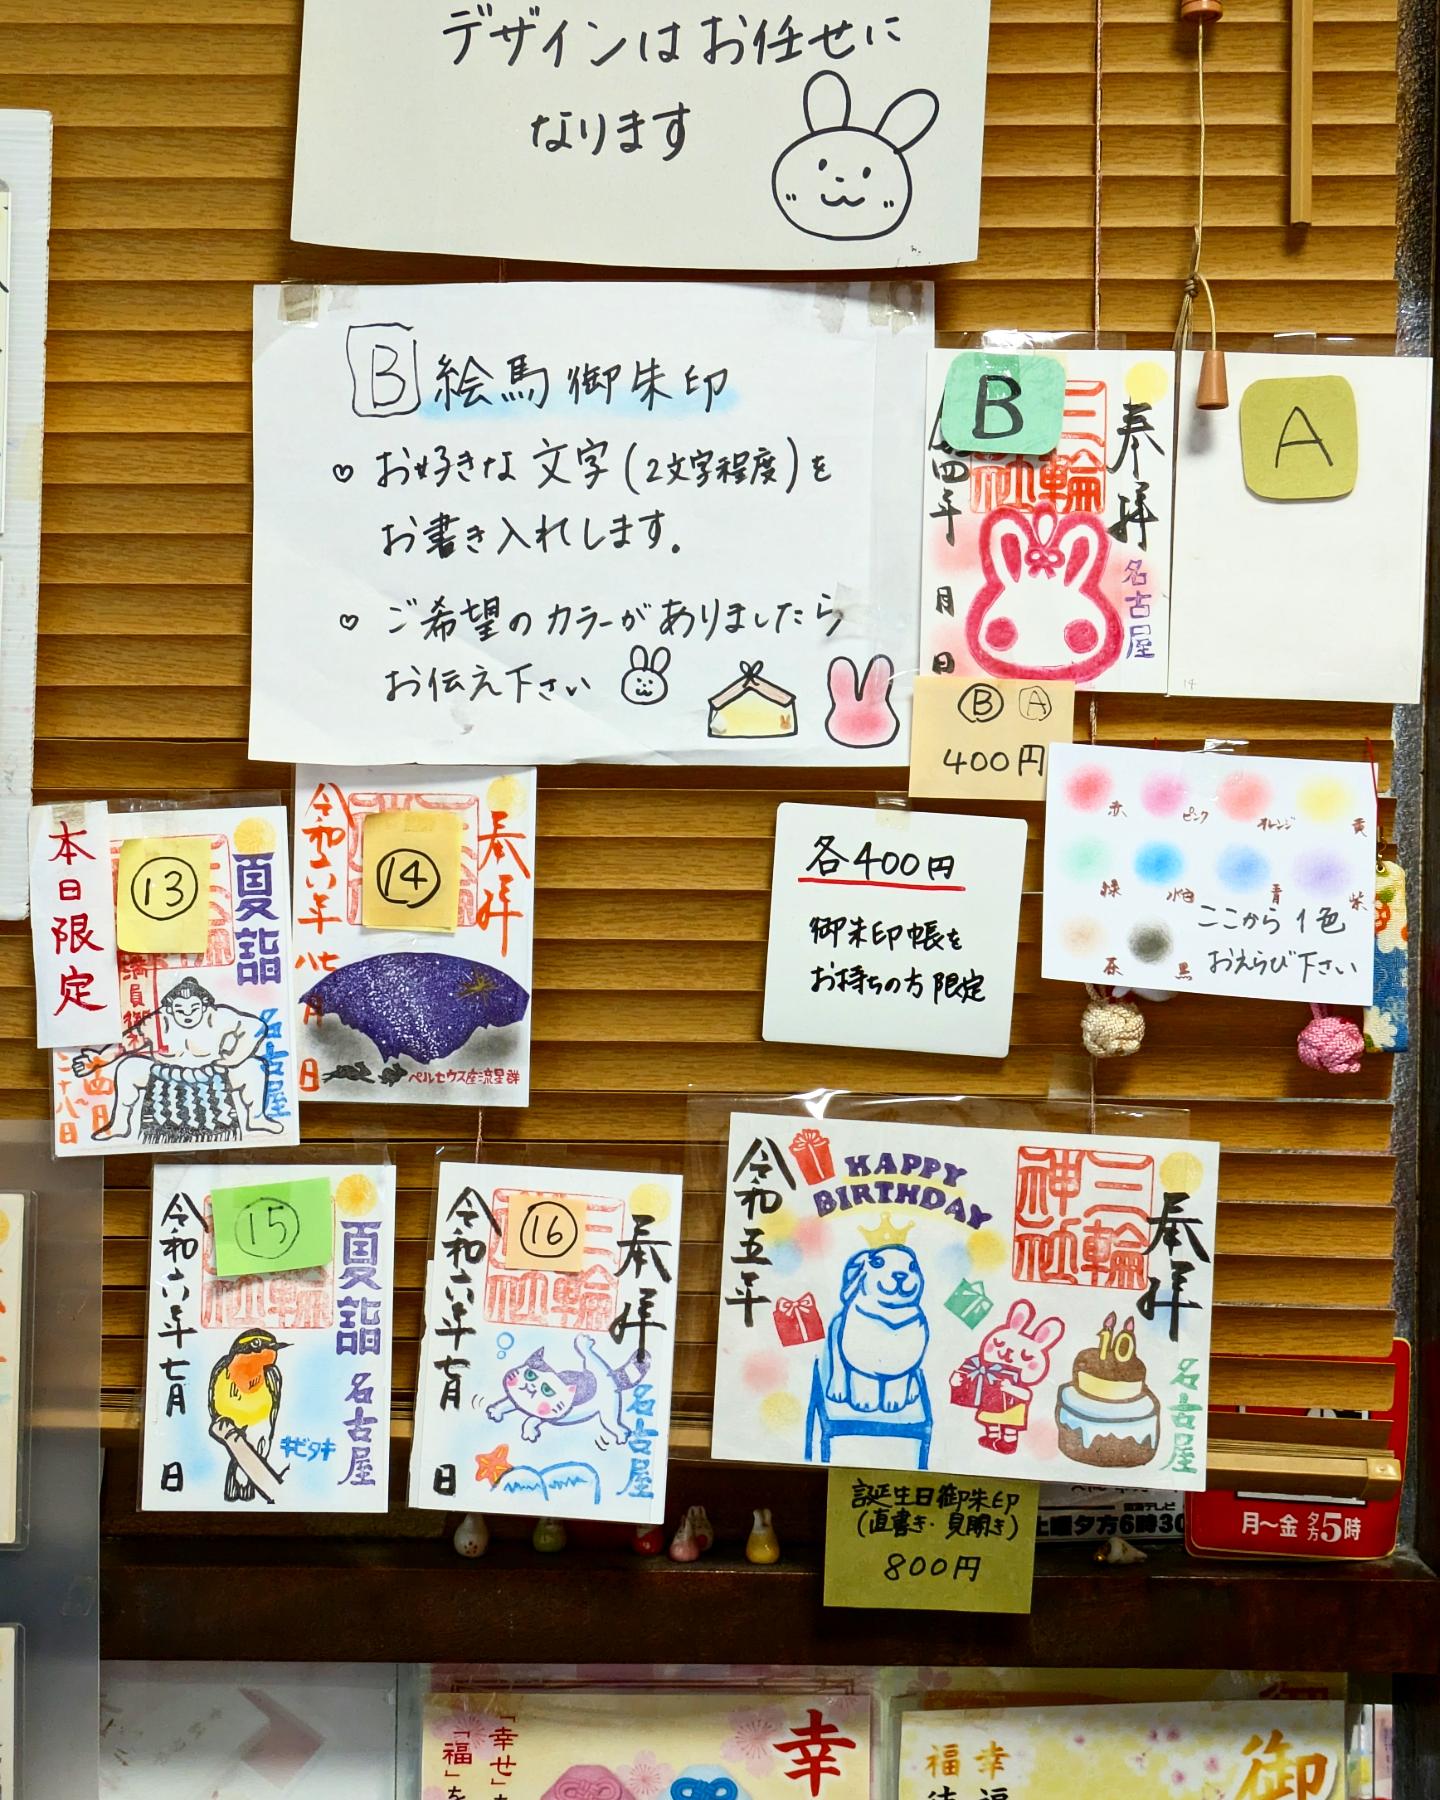 デザインはお任せに
なります
B 絵馬御朱印
♡ お好きな文字(2文字程度)を
お書き入れします。
♡ ご希望のカラーがありましたら
お伝え下さい
B
奉拝
三輪
四年
月
日
名古屋
A
Ⓑ Ⓐ
400円
赤
ピンク
オレンジ
黄
緑
水色
青
紫
茶
黒
ここから1色
おえらび下さい
各400円
御朱印帳を
お持ちの方限定
本日限定
⑬
夏詣
満員御礼
名古屋
⑭
奉拝
令和六年
八七月
日
ペルセウス座流星群
⑮
夏詣
令和六年七月
日
名古屋
キビタキ
⑯
奉拝
三輪
令和六年七月
日
名古屋
HAPPY
BIRTHDAY
奉拝
三輪
神社
令和五年
10
名古屋
誕生日御朱印
(直書き・見開き)
800円
土曜夕方6時30
月〜金 夕方5時
「幸せ」
「福」を
幸
幸福
御